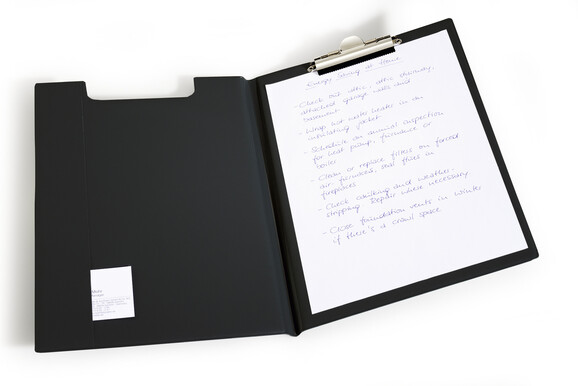 Energy Saving at Home
- Check out attic, attic stairway,
attached garage walls and
basement
- Wrap hot water heater in an
insulating jacket
- Schedule an annual inspection
for heat pump, furnace or
boiler
- Clean or replace filters on forced
air furnaces, seal flues in
fireplaces
- Check caulking and weather
stripping. Repair where necessary
- Close foundation vents in winter
if there's a crawl space